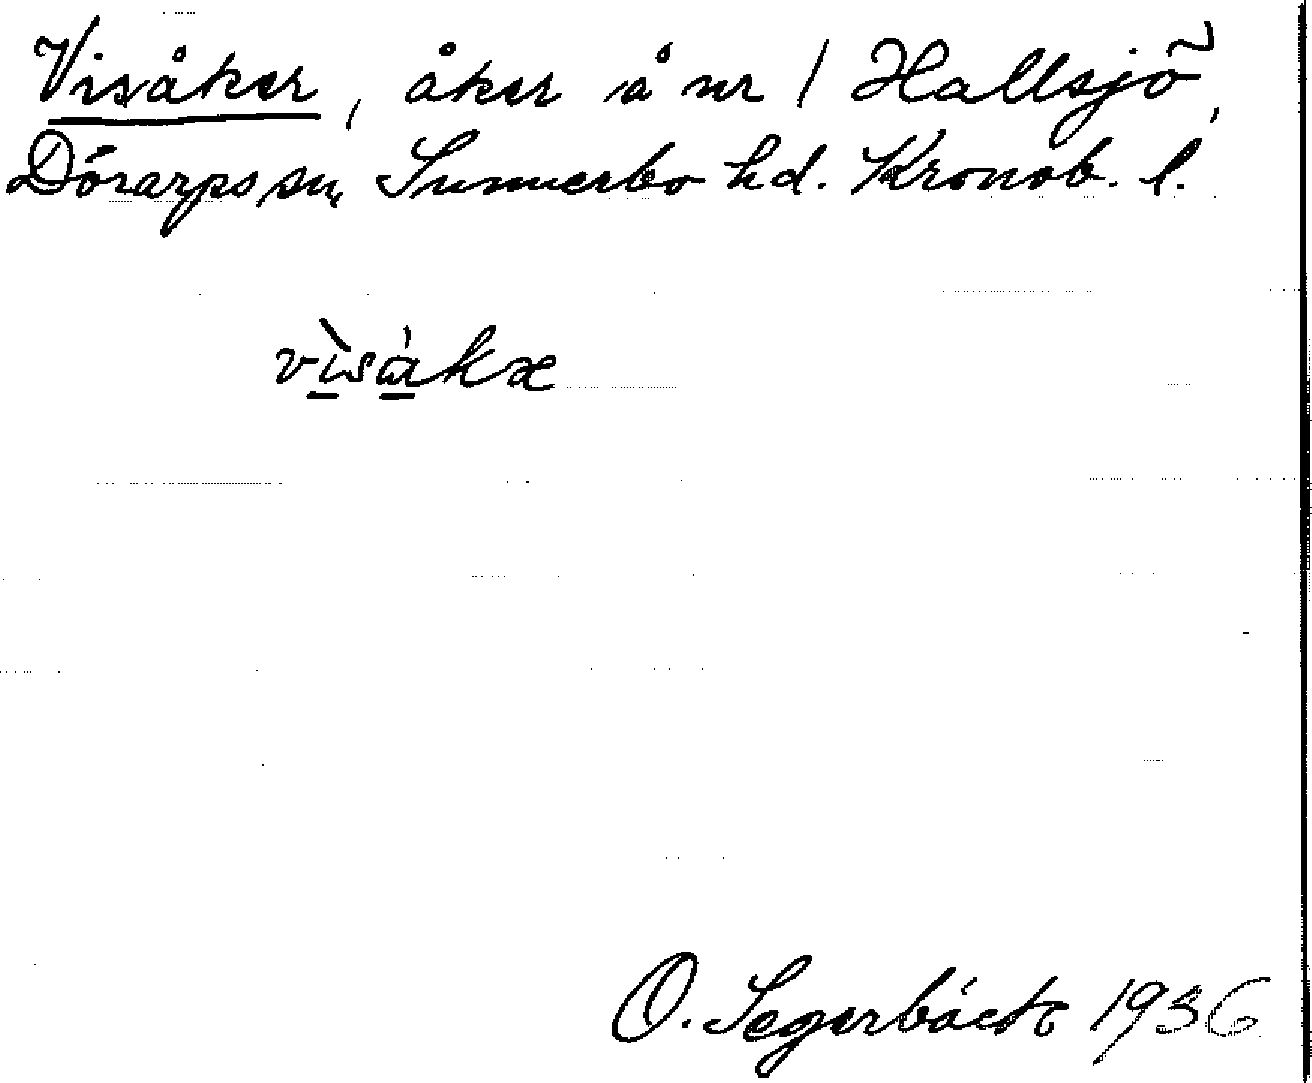 Visåker, åker å nr 1 Hallsjö,
Dörarps sn, Sunnerbo hd. Kronob. l.
vìsàkæ
O. Segerbäck 1936